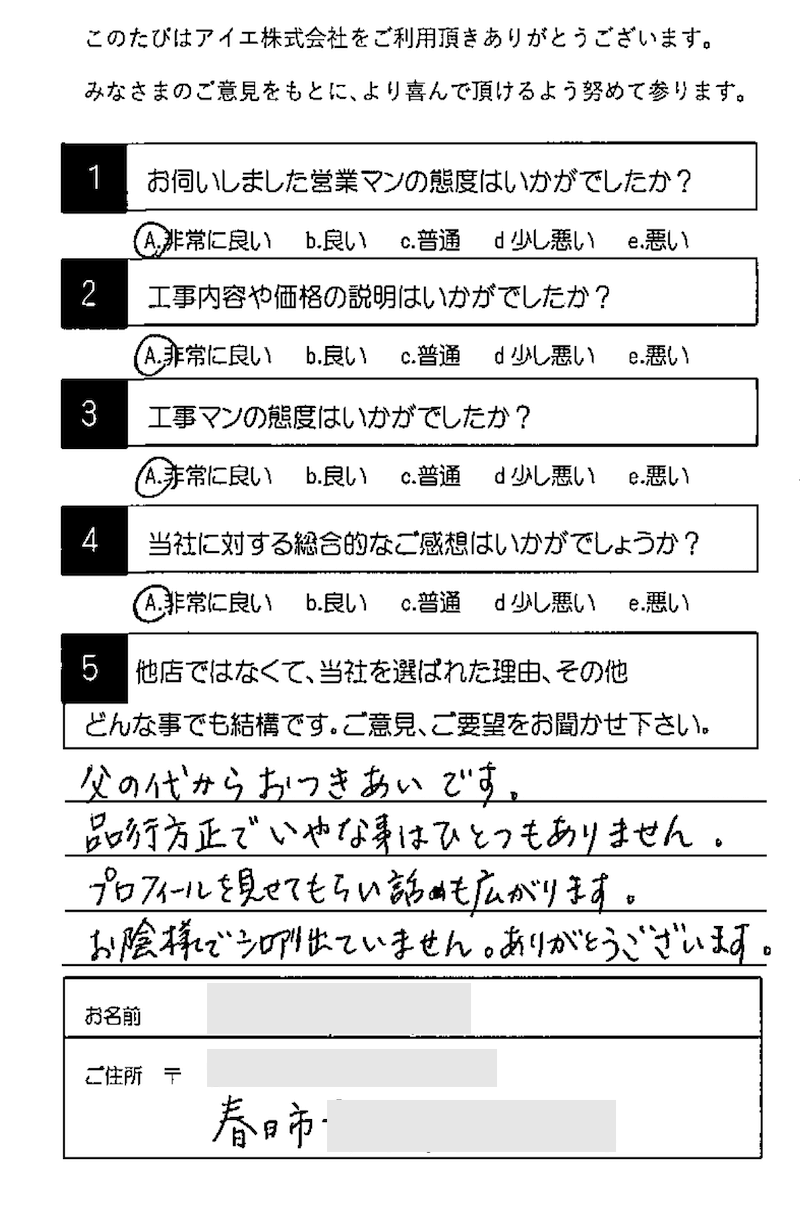 このたびはアイエ株式会社をご利用頂きありがとうございます。
みなさまのご意見をもとに、より喜んで頂けるよう努めて参ります。
1 お伺いしました営業マンの態度はいかがでしたか？
A.非常に良い b.良い c.普通 d 少し悪い e.悪い
2 工事内容や価格の説明はいかがでしたか？
A.非常に良い b.良い c.普通 d 少し悪い e.悪い
3 工事マンの態度はいかがでしたか？
A.非常に良い b.良い c.普通 d 少し悪い e.悪い
4 当社に対する総合的なご感想はいかがでしょうか？
A.非常に良い b.良い c.普通 d 少し悪い e.悪い
5 他店ではなくて、当社を選ばれた理由、その他
どんな事でも結構です。ご意見、ご要望をお聞かせ下さい。
父の代からおつきあいです。
品行方正でいやな事はひとつもありません。
プロフィールを見せてもらい話も広がります。
お陰様で出ていません。ありがとうございます。
お名前
ご住所 〒
春日市